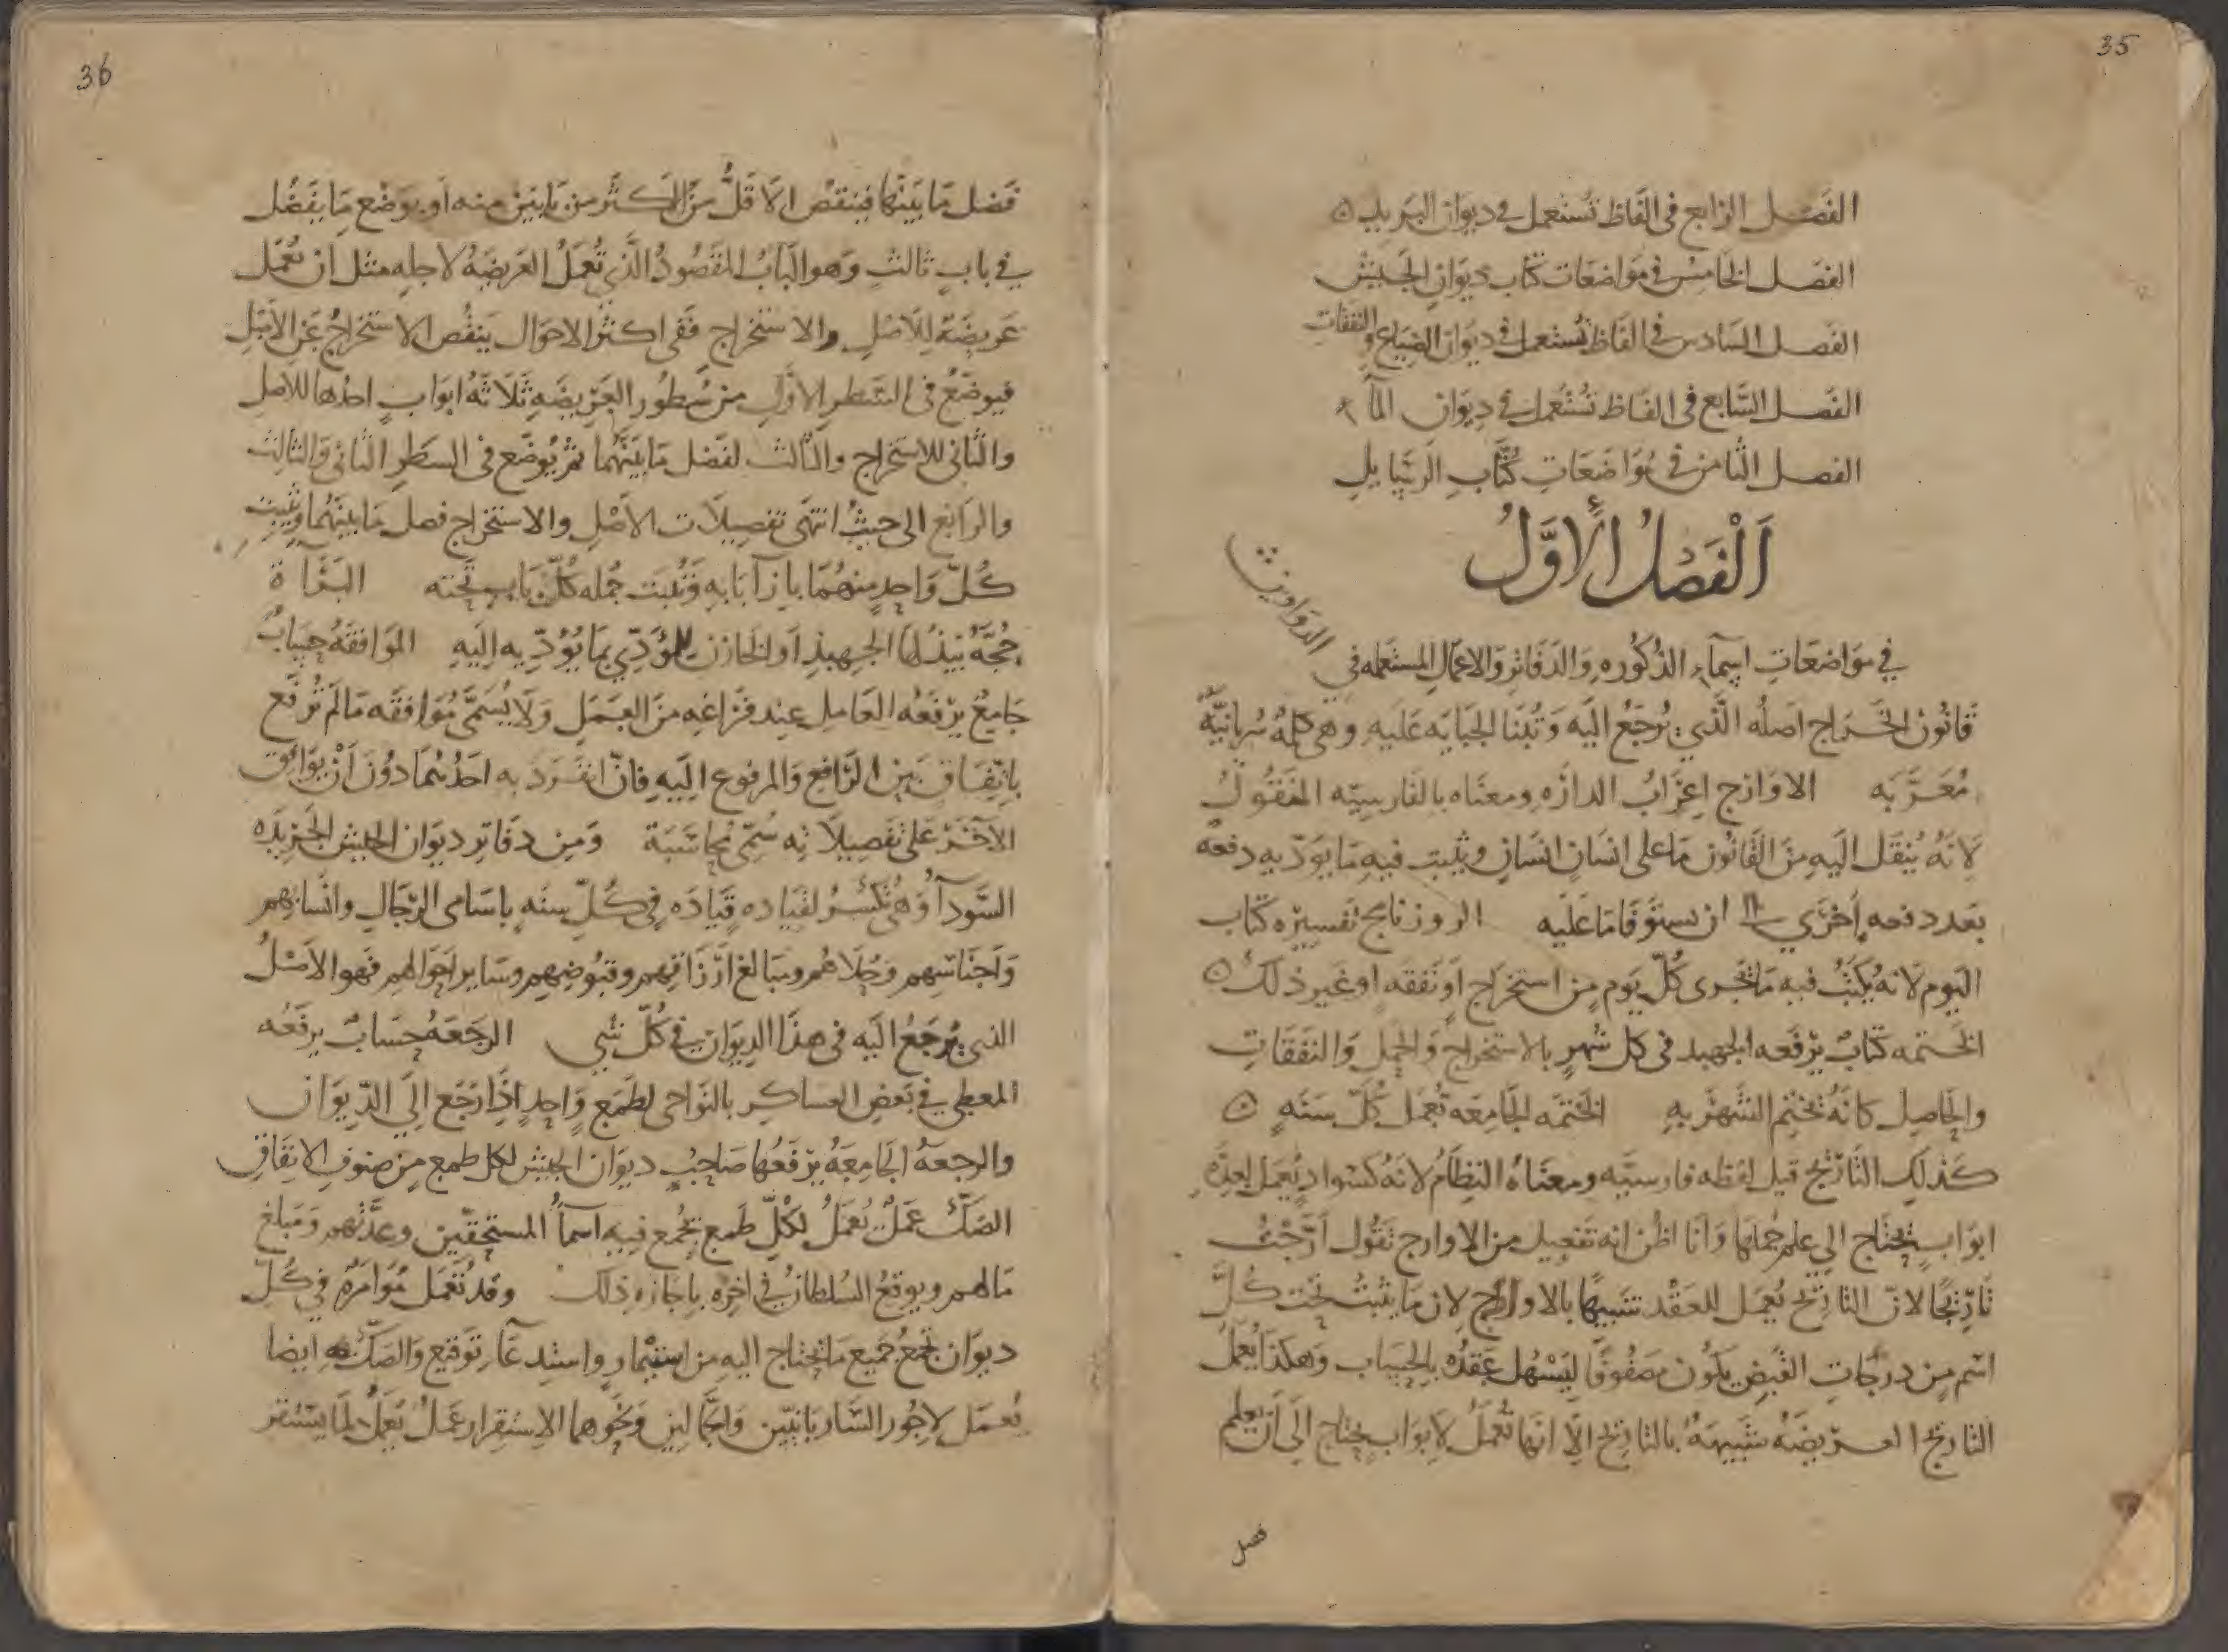 35
الفصل الرابع في الفاظ تستعمل في ديوان البريد
الفصل الخامس في مواضعات كتاب ديوان الجيش
الفصل السادس في الفاظ تستعمل في ديوان الضياع والنفقات
الفصل السابع في الفاظ تستعمل في ديوان المآ
الفصل الثامن في مواضعات كُتّاب الرسايل
اَلْفَصْلُ الأَوَّلُ
في مواضعات اسمآء الذكوره والدفاتر والاعمال المستعمله في الدواوين
قانون الخراج اصله الذي يُرجع اليه وتُبنا الجبايه عليه وهي كلمة سُريانيّة
مُعَرَّبه الاوارج اعراب الداره ومعناه بالفارسيّه المنقول
لانه يُنقل اليه من القانون ما على انسان انسان ويثبت فيه ما يودّيه دفعه
بعد دفعه أخرى الى ان يستوفا ما عليه الروزنامج تفسيره كتاب
اليوم لانه يُكتب فيه ما يجرى كلّ يوم من استخراج او نفقه او غير ذلك
الختمه كتابٌ يرفعه الجهبد في كل شهر بالاستخراج والحمل والنفقات
والحاصل كانه يختم الشهر به الختمه الجامعه تُعمل كلّ سنه
كذلك التاريج قيل لفظه فارسيّه ومعناه النظام لانه كسواد يُعمل لعدّه
ابواب يحتاج الي علم جملها وانا اظن انه تفعيل من الاوارج تقول ارّجتُ
تاريجًا لانّ التاريج يُعمل للعقد تشبيهًا بالاوارج لان ما يثبت تحت كُلّ
اسم من درجات القبض يكون مصفوفًا ليسهل عقده بالحساب وهكذا يُعمل
التاريج العريضه شبيهة بالتاريج الا انها تُعمل لابواب يحتاج الى ان يعلم
فضل
36
فضل ما بينها فينقص الاقلّ من الاكثر من بابين منه او يوضع ما يفضُل
في باب ثالث وهو الباب المقصود الذي تُعمل العريضة لاجله مثل ان تُعمل
عريضة للاصل والاستخراج ففي اكثر الاحوال ينقُص الاستخراج عن الاصل
فيوضع في السطر الاول من سُطور العريضه ثلاثة ابواب احدها للاصل
والثاني للاستخراج والثالث لفضل ما بينهما ثم يوضع في السطر الثاني والثالث
والرابع الى حيث انتهى تفصيلات الاصل والاستخراج فصل ما بينهما ويثبت
كُلّ واحد منهما بازآ بابه وتثبت جمله كُلّ باب تحته البرآة
حُجّة يبذلها الجهبذ او الخازن للمؤدّي بما يؤدّيه اليه الموافقة حساب
جامع يرفعه العامل عند فراغه من العمل ولا يُسمّى مُوافقه ما لم تُرفع
باتفاق بين الرافع والمرفوع اليه فان انفرد به احدُهما دون أن يوافق
الآخر على تفصيلاته سُمّي مُحاسَبَة ومن دفاتر ديوان الجيش الجريده
السودآ وهي تكسر لقياده قياده في كلّ سنه باسامى الرجال وانسابهم
واجناسهم وحُلاهم ومبالغ ارزاقهم وقبوضهم وساير احوالهم فهو الاصل
الذي يُرجع اليه في هذا الديوان في كُلّ شي الرجعة حساب يرفعه
المعطى في بعض العساكر بالنواحى لطمع واحد اذا رجع الي الديوان
والرجعة الجامعة يرفعها صاحب ديوان الجيش لكل طمع من صنوف الانفاق
الصكّ عملٌ يُعمل لكلّ طمع يجمع فيه اسمآ المستحقّين وعدّتهم ومبلغ
مالهم ويوقع السلطان في اخره باجازه ذلك وقد تُعمل مُوامرة في كُلّ
ديوان تجمع جميع ما يحتاج اليه من استيمار واستدعآء توقيع والصكّ ايضا
يُعمل لاجور الساربانيّين والجمّالين ونحوهما الاستقرار عملٌ يُعمل لما يستقر